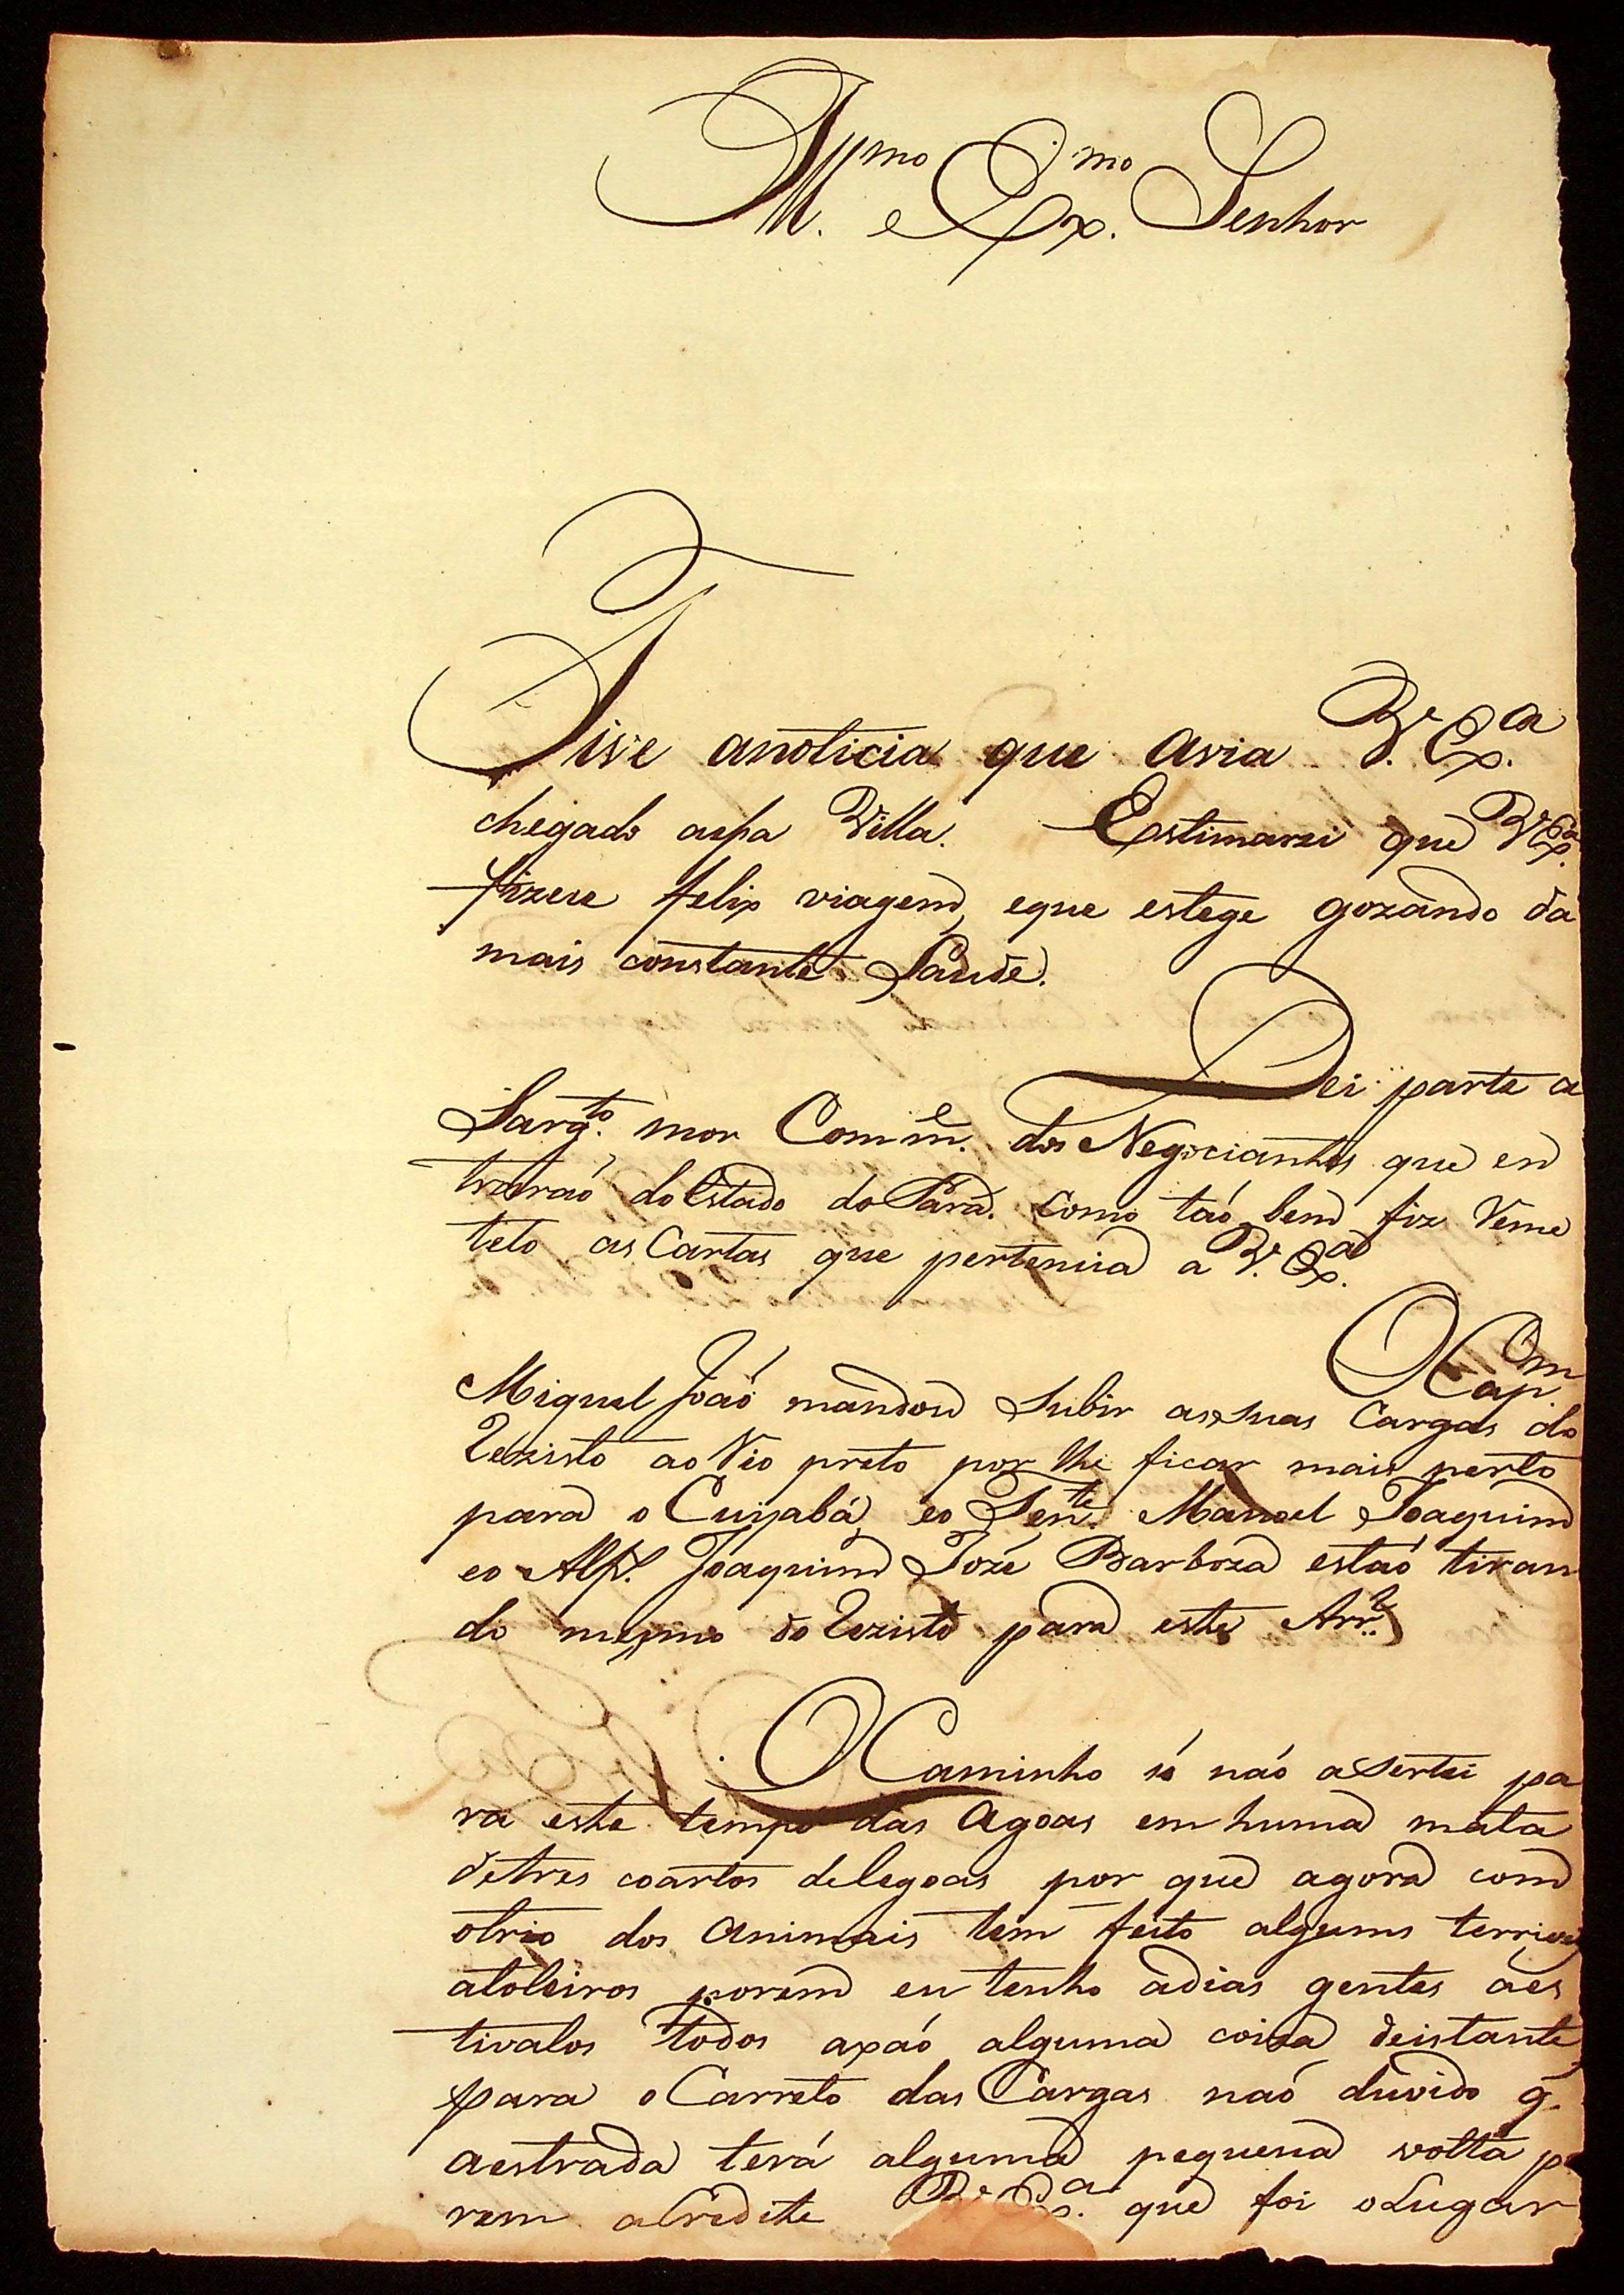 Ill.mo e Ex.mo Senhor
Tive anoticia que avia V. Ex.a
chegado aessa Villa. Estimarei que V. Ex.a
fizese felix viagem, eque estege gozando da
mais constante Saude.
Dei parte a
Sarg.to mor Comm.e dos Negociantes que en
traraó do Estado do Pará. como taó bem fiz Reme
telo as Cartas que pertencia a V. Ex.a
O Cap.m
Miguel Joaó mandou Subir as suas Cargas do
ao Rio preto por lhe ficar mais perto
para o Cuyabá, eo Ten.te Manoel Joaquim
eo Alf.s Joaquim Jozé Barboza estaó tiran
do mesmo do para este Arr.al
O Caminho só naó asertei pa
ra este tempo das Agoas em huma mata
detres coartos delegoas por que agora com
otrio dos Animais tem feito alguns terrivei
atoleiros porem eu tenho adias gentes aes
tivalos todos axaó alguma coiza deistante
para o Carreto das Cargas naó duvido q.
aestrada terá alguma pequena volta po
rem acredite V. Ex.a que foi o Lugar